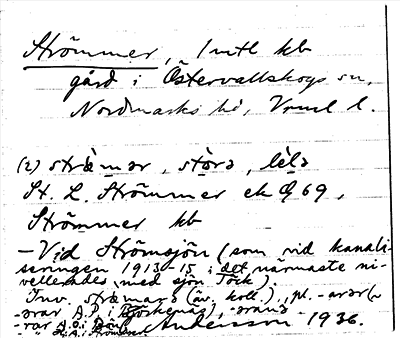 Strömmer, Intl kb
gård i Östervallskogs sn,
Nordmarks hd, Vrml l.
(2) stræ̀mər, stö̀rə, lèlə
St. L. Strömmer ek Q 69,
Strömmer kb
— Vid Strömsjön (som vid kanali-
seringen 1913-15 i det närmaste ni-
vellerades med sjön Töck).
Inv. stræmarə (äv. koll.), pl. -arər (~
-orar A.P. i
-rar A.O. i Andersson 1936.